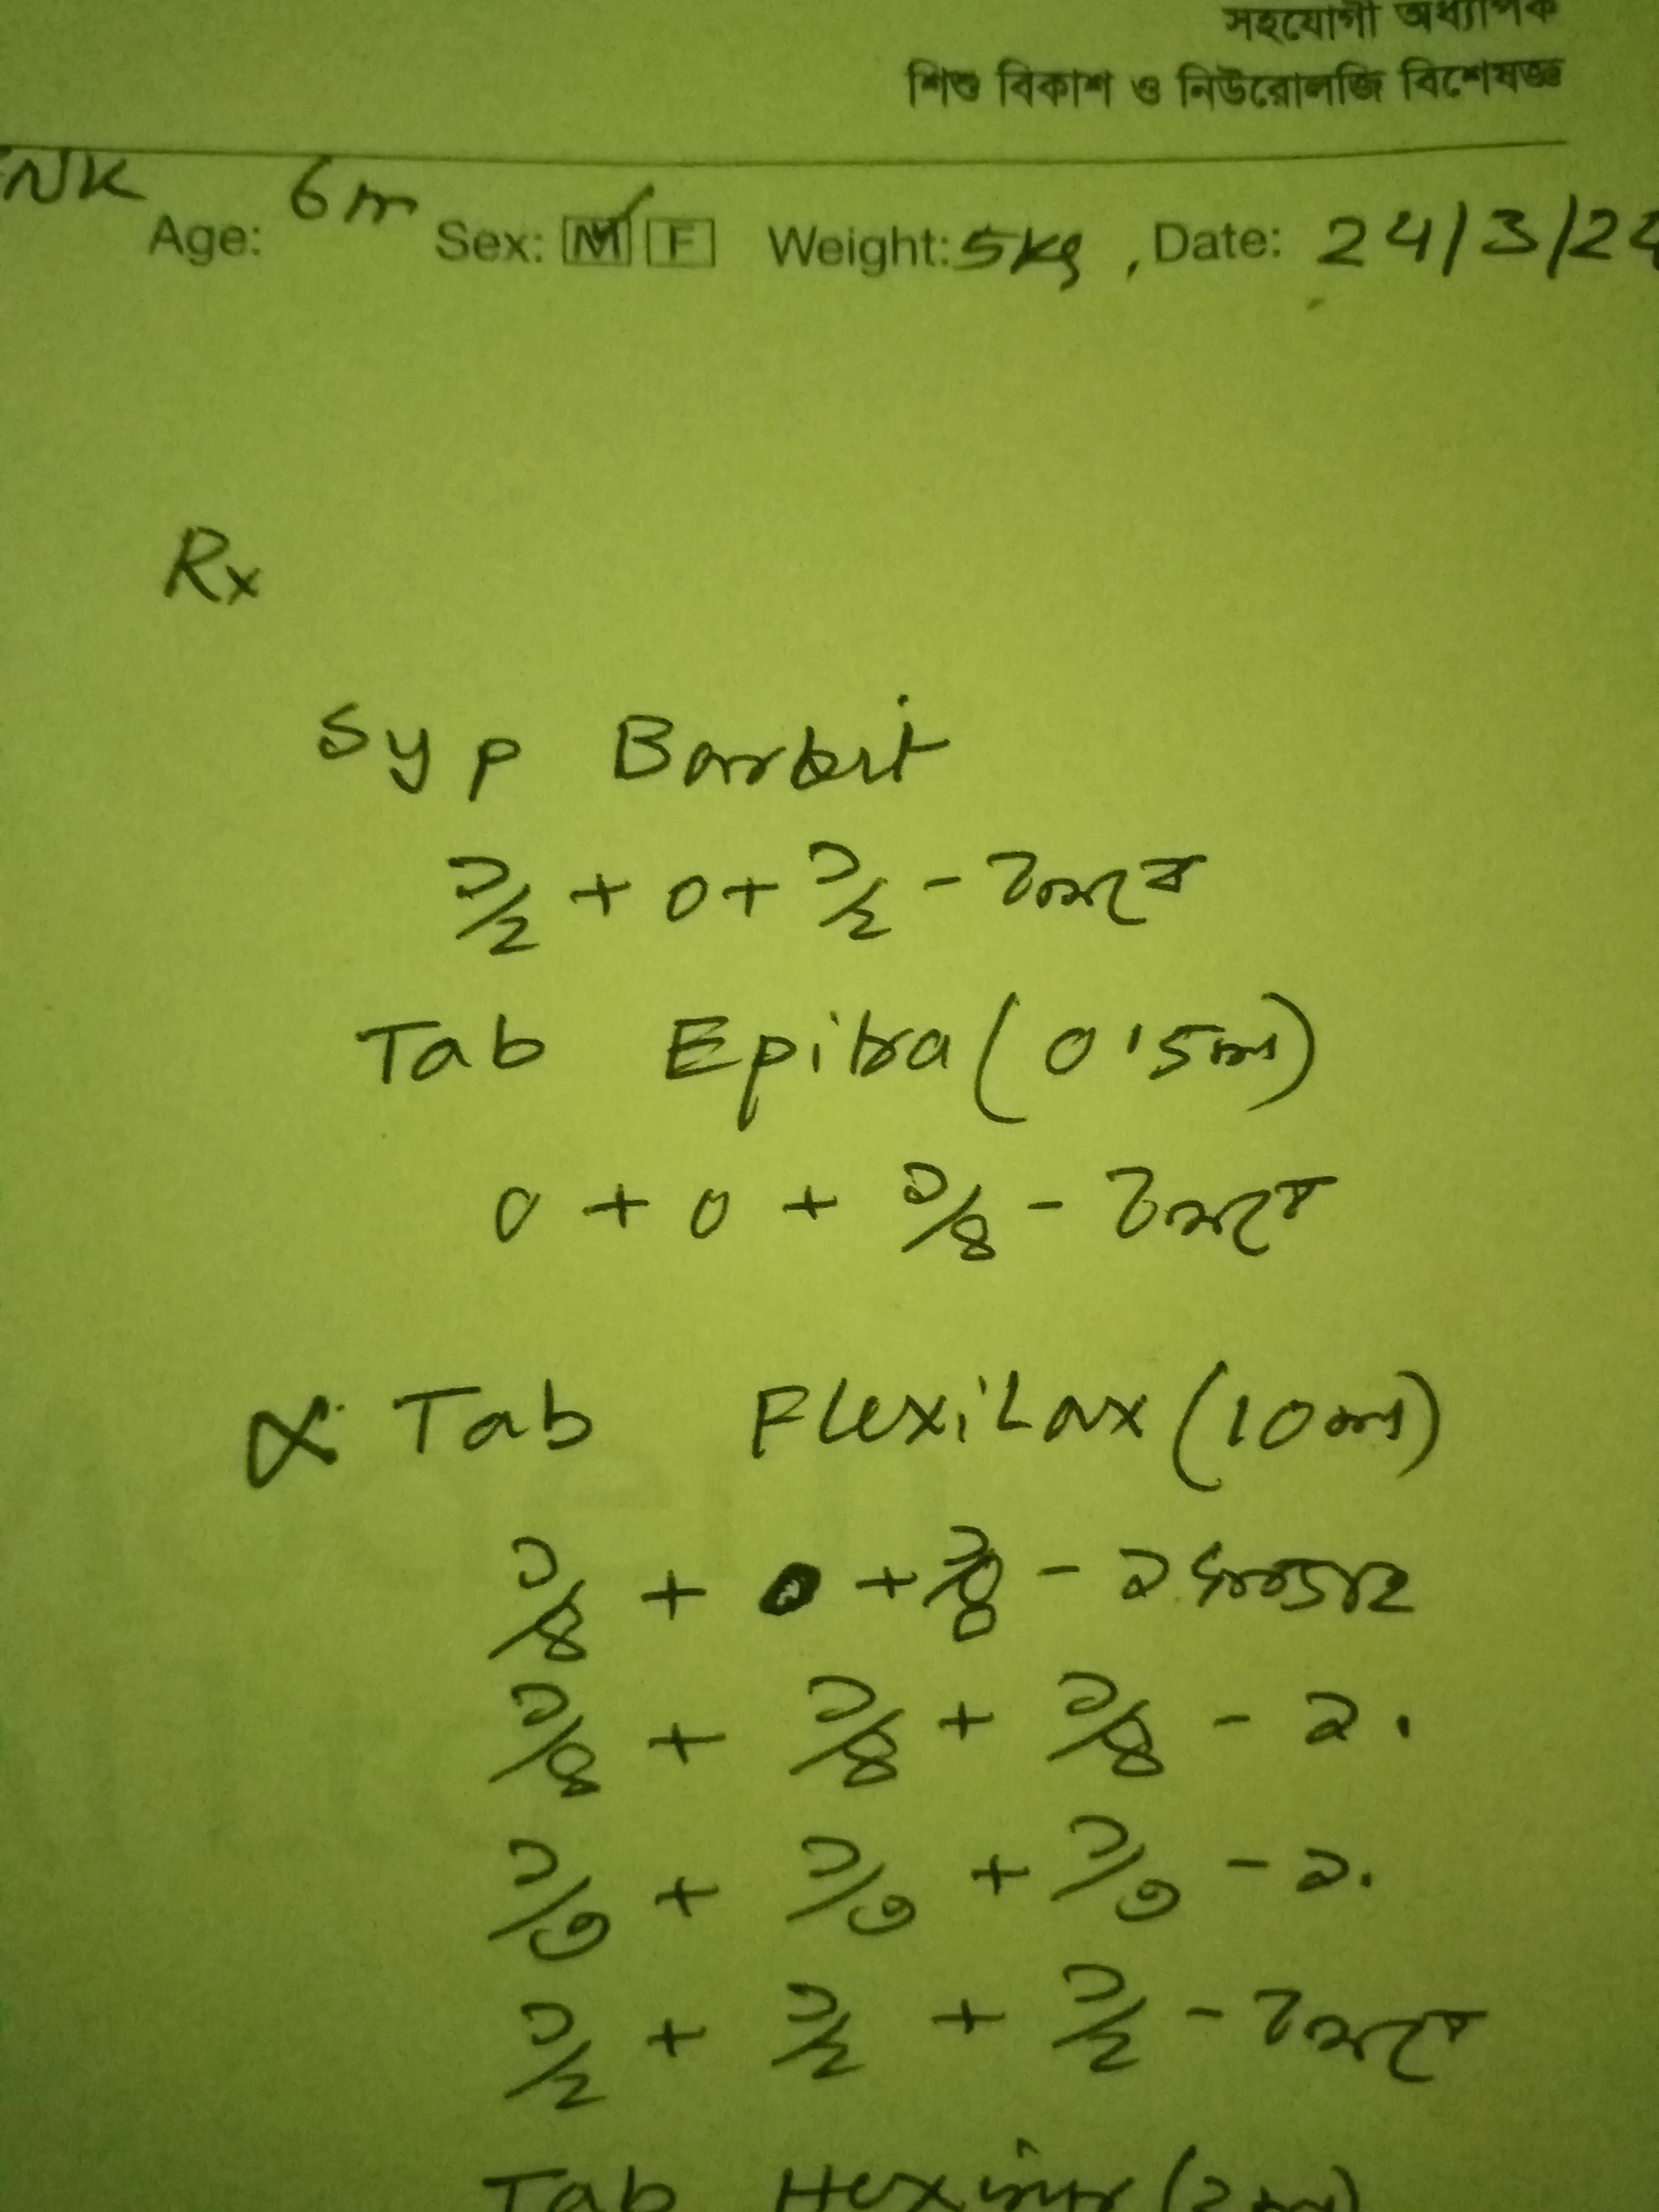 সহযোগী অধ্যাপক
শিশু বিকাশ ও নিউরোলজি বিশেষজ্ঞ
Age: 6m Sex: M F Weight: 5kg, Date: 24/3/24
Rx
Syp Barbit
১/২ + 0 + ১/২ - চলবে
Tab Epitra (0.5mg)
0 + 0 + ১/৪ - চলবে
Tab Flexilax (10mg)
১/৪ + 0 + ১/৪ - ২ সপ্তাহ
১/৪ + ১/৪ + ১/৪ - ২
১/৩ + ১/৩ + ১/৩ - ২
১/২ + ১/২ + ১/২ - চলবে
Tab